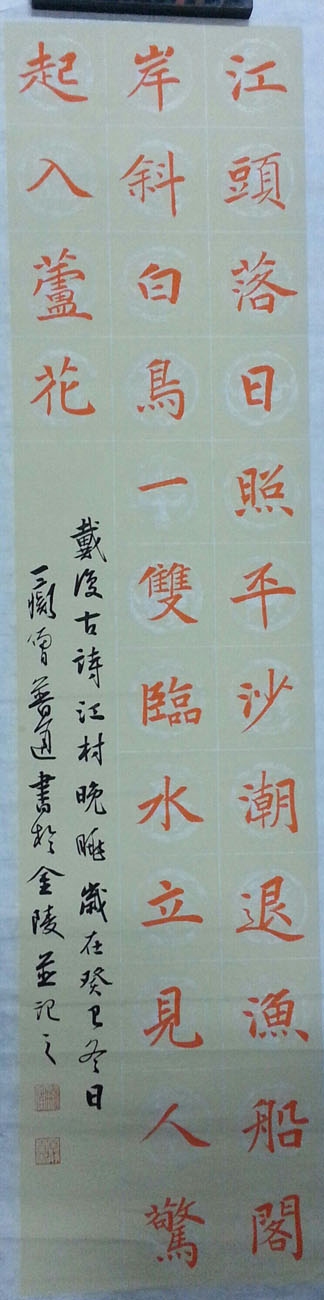 江頭落日照平沙潮退漁船閣
岸斜白鳥一雙臨水立見人驚
起入蘆花
戴復古詩江村晚眺歲在癸巳冬日
一懶僧普通書於金陵並記之